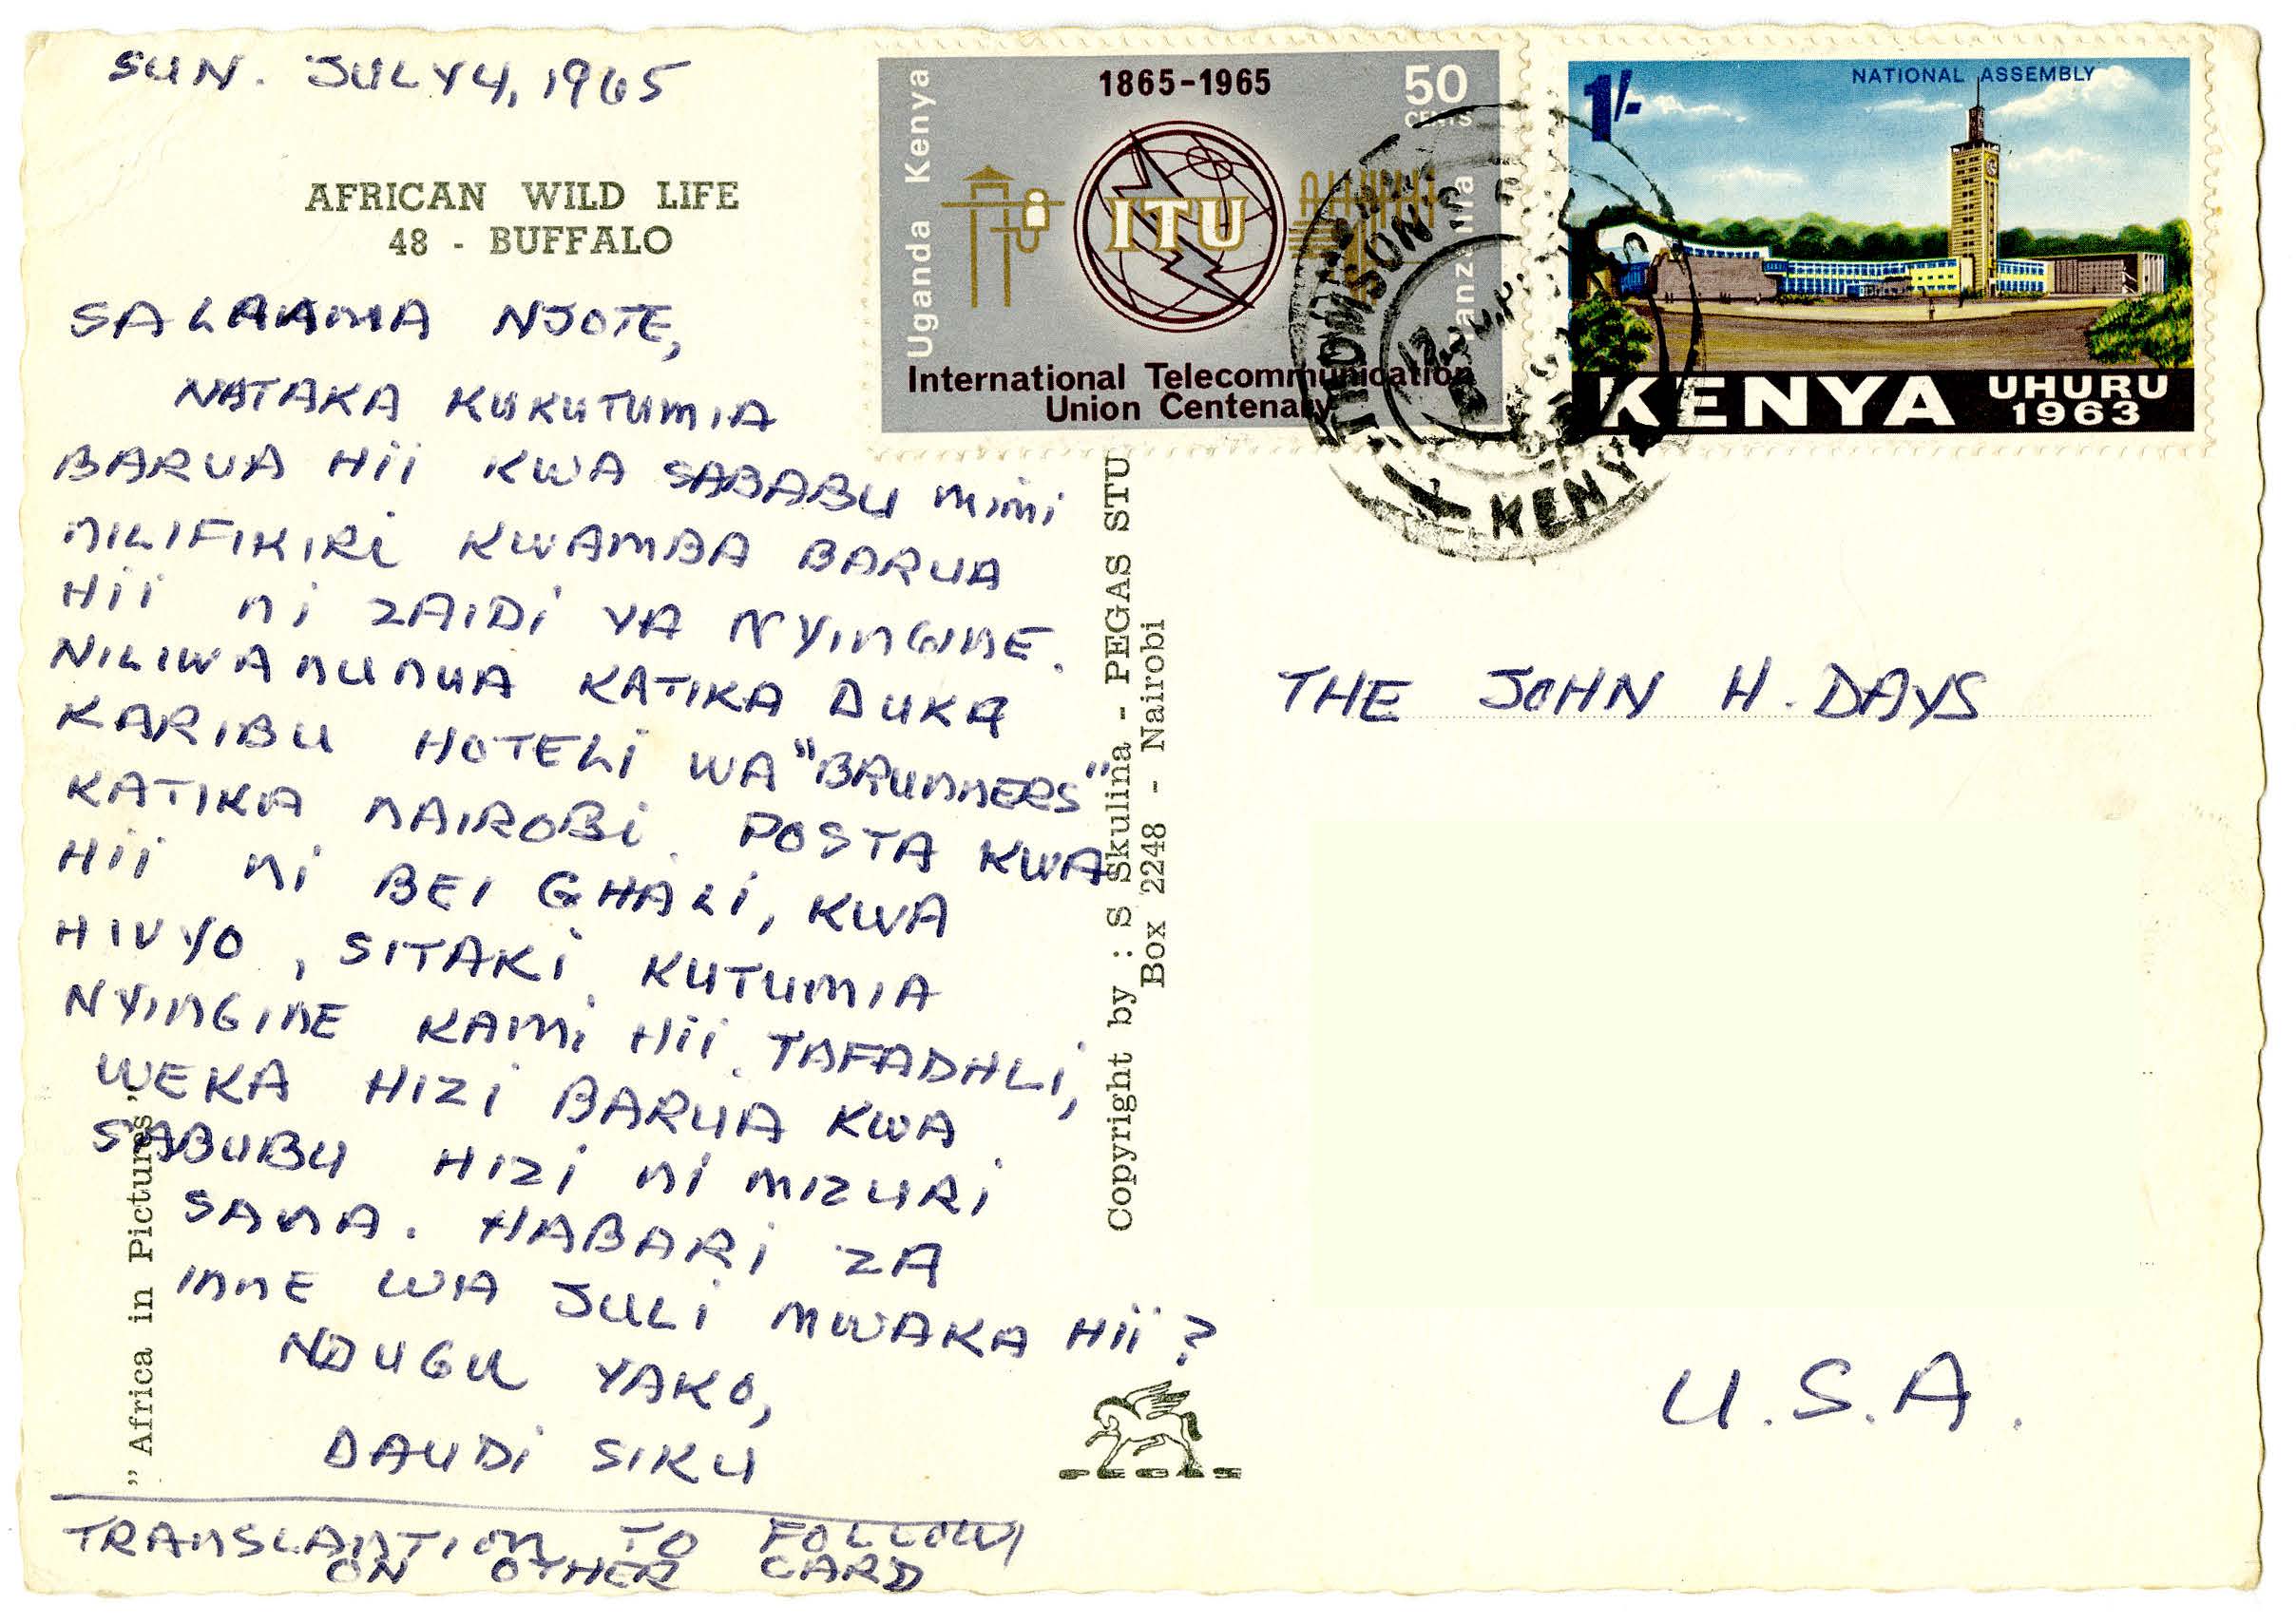 SUN. JULY 4, 1965
AFRICAN WILD LIFE
48 - BUFFALO
SALAAMA NJOTE,
NATAKA KUKUTUMIA
BARUA HII KWA SABABU MIMI
NILIFIKIRI KWAMBA BARUA
HII NI ZAIDI YA NYINGINE.
NILIWANUNUA KATIKA DUKA
KARIBU HOTELI WA "BRUNNERS"
KATIKA NAIROBI. POSTA KWA
HII NI BEI GHALI, KWA
HIVYO, SITAKI KUTUMIA
NYINGINE KAMI HII. TAFADHLI,
WEKA HIZI BARUA KWA
SABUBU HIZI NI MIZURI
SANA. HABARI ZA
INNE WA JULI MWAKA HII?
NDUGU YAKO,
DAUDI SIKU
TRANSLANTION TO FOLLOW
ON OTHER CARD
"Africa in Pictures"
Copyright by : S Skulina - PEGAS STU
Box 2248 - Nairobi
1865-1965
50
CENTS
Uganda Kenya
Tanzania
ITU
International Telecommunication
Union Centenary
NATIONAL ASSEMBLY
1/-
KENYA UHURU
1963
THOMSON'S
KENYA
THE JOHN H. DAYS
U.S.A.